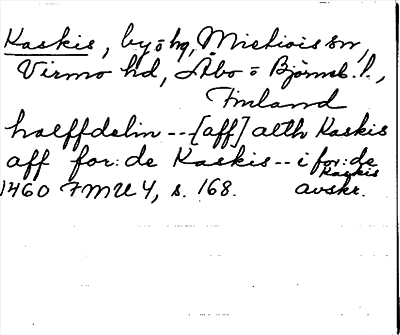 Kaskis, by o hg, Mietois sn,
Virmo hd, Åbo o Björneb. l.,
Finland
halffdelin -- [aff] alth Kaskis
aff for: de Kaskis -- i for: de
Kaskis
1460 FMU 4, s. 168. avskr.